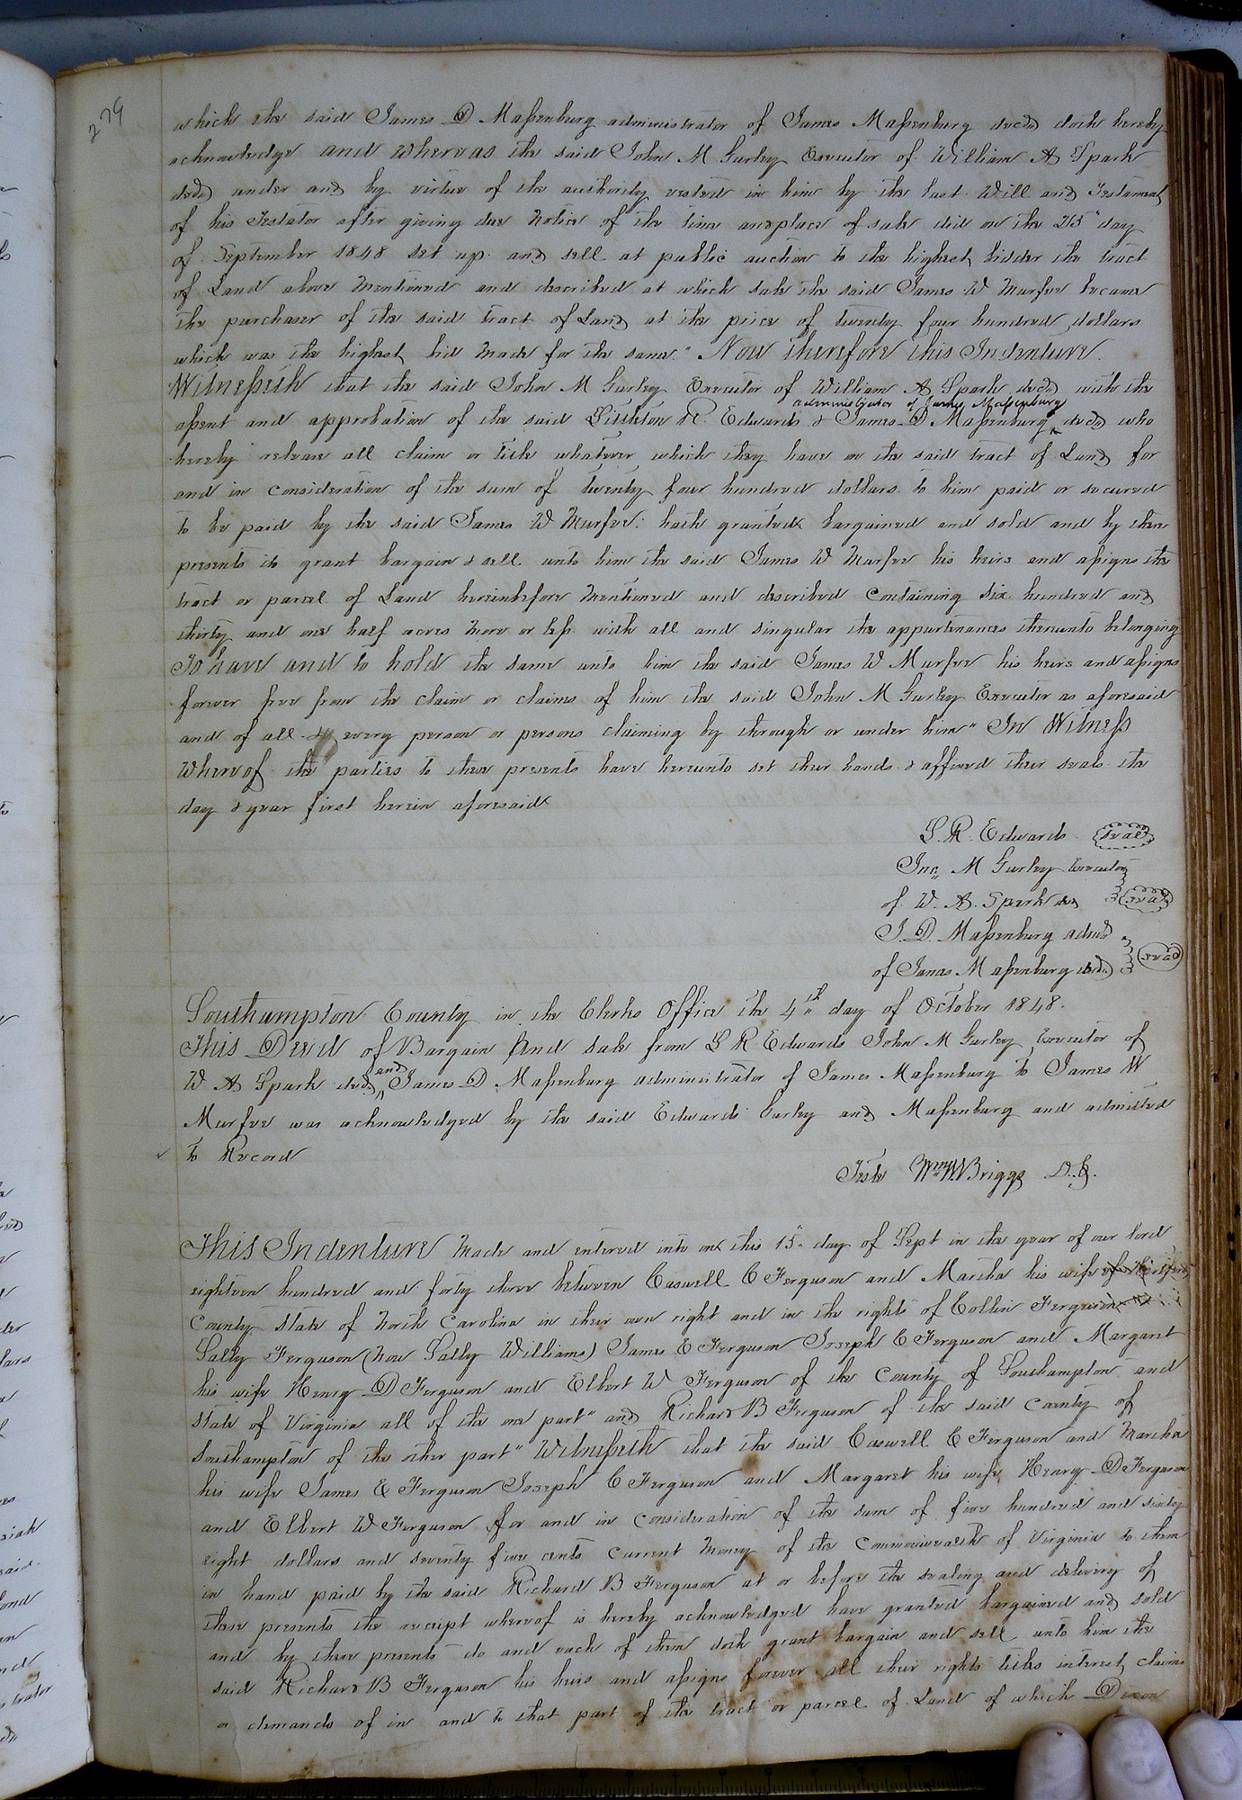 279
which the said James D Massenburg administrator of James Massenburg decd doth hereby
acknowledge and whereas the said John M Gurley Executor of William A Spark
decd under and by virtue of the authority vested in him by the last Will and Testament
of his Testator after giving due notice of the time and place of sale did on the 25" day
of September 1848 set up and sell at public auction to the highest bidder the tract
of Land above mentioned and described at which sale the said James W Murfee became
the purchaser of the said tract of Land at the price of twenty four hundred dollars
which was the highest bid made for the same" Now therefore this Indenture
Witnesseth that the said John M Gurley Executor of William A Spark decd with the
administrator of James Massenburg
assent and approbation of the said Littleton R. Edwards & James D Massenburg decd who
hereby release all claim or title whatever which they have on the said tract of Land for
and in consideration of the sum of twenty four hundred dollars to him paid or secured
to be paid by the said James W Murfee: hath granted bargained and sold and by these
presents do grant bargain & sell unto him the said James W Murfee his heirs and assigns the
tract or parcel of Land hereinbefore mentioned and described containing six hundred and
thirty and one half acres more or less with all and singular the appurtenances thereunto belonging
To have and to hold the same unto him the said James W Murfee his heirs and assigns
forever free from the claim or claims of him the said John M Gurley Executor as aforesaid
and of all & every person or persons claiming by through or under him" In Witness
Whereof the parties to these presents have hereunto set their hands & affixed their seals the
day & year first herein aforesaid
L. R. Edwards seal
Jno. M Gurley Executor
of W. A. Spark decd seal
J. D. Massenburg admr
of James Massenburg decd seal
Southampton County in the Clerks Office the 4th day of October 1848.
This Deed of Bargain And sale from L R Edwards John M Gurley Executor of
W A Spark decd and James D Massenburg administrator of James Massenburg to James W
Murfee was acknowledged by the said Edwards Gurley and Massenburg and admitted
to Record
Teste Wm W Briggs D.C.
This Indenture made and entered into on this 15 day of Sept in the year of our lord
eighteen hundred and forty three between Caswell C Ferguson and Marcha his wife
County State of North Carolina in their own right and in the rights of Collin Ferguson
Sally Ferguson (now Sally Williams) James E Ferguson Joseph C Ferguson and Margaret
his wife Henry D Ferguson and Elbert W Ferguson of the County of Southampton and
State of Virginia all of the one part" and Richard B Ferguson of the said County of
Southampton of the other part" Witnesseth that the said Caswell C Ferguson and Marcha
his wife James E Ferguson Joseph C Ferguson and Margaret his wife Henry D Ferguson
and Elbert W Ferguson for and in consideration of the sum of five hundred and sixty
eight dollars and seventy five cents current money of the Commonwealth of Virginia to them
in hand paid by the said Richard B Ferguson at or before the sealing and delivery of
these presents the receipt whereof is hereby acknowledged have granted bargained and sold
and by these presents do and each of them doth grant bargain and sell unto him the
said Richard B Ferguson his heirs and assigns forever all their rights titles interest claims
or demands of in and to that part of the tract or parcel of Land of which Dixon